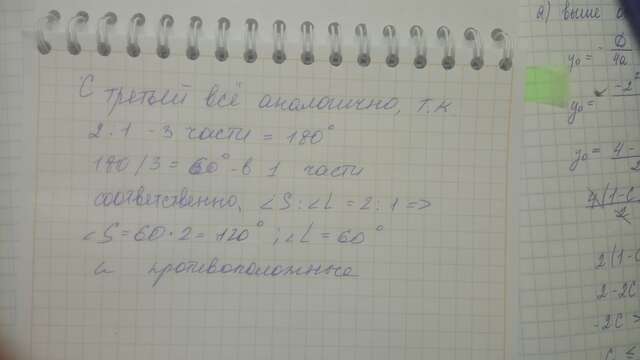 С третьей всё аналогично, т.к.
2:1 - 3 части = 180°
180/3 = 60° - в 1 части
соответственно, ∠S:∠L = 2:1 =>
∠S = 60·2 = 120°; ∠L = 60°
и противоположные
а) выше
y₀ = - D/4a
y₀ = -2²
y₀ = 4 -
2(1-C
2-2C
-2C >